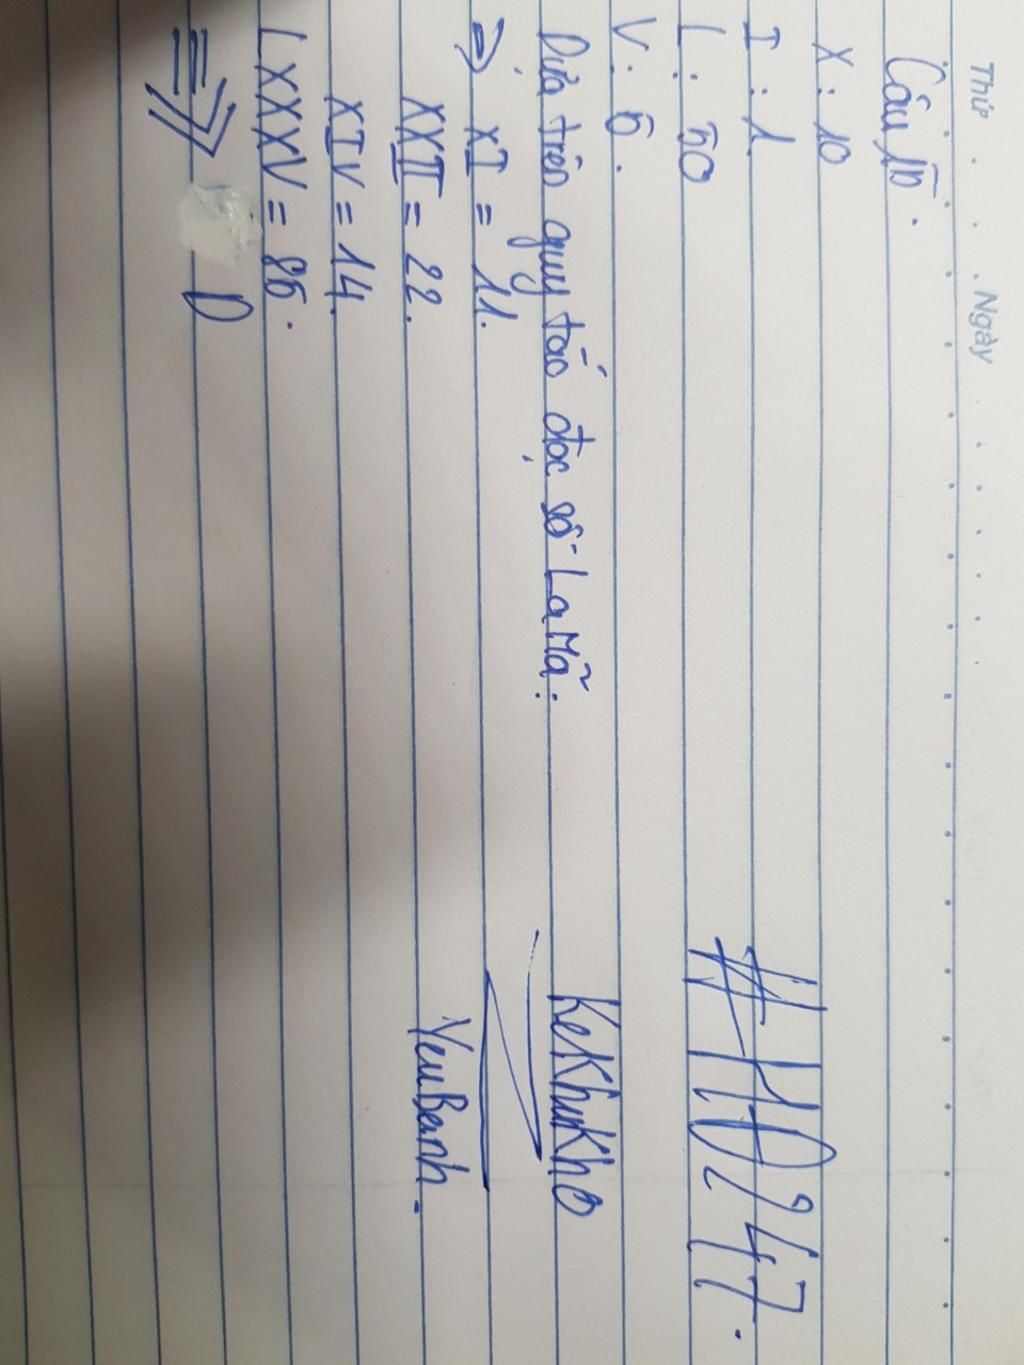 Thứ
Ngày
Câu 15.
X: 10
I: 1.
L: 50
V: 5.
Dựa trên quy tắc đọc số La Mã:
=> XI = 11.
XXII = 22.
XIV = 14.
LXXXV = 85.
=> D
#HD247.
KeKhuKho
YeuBanh.